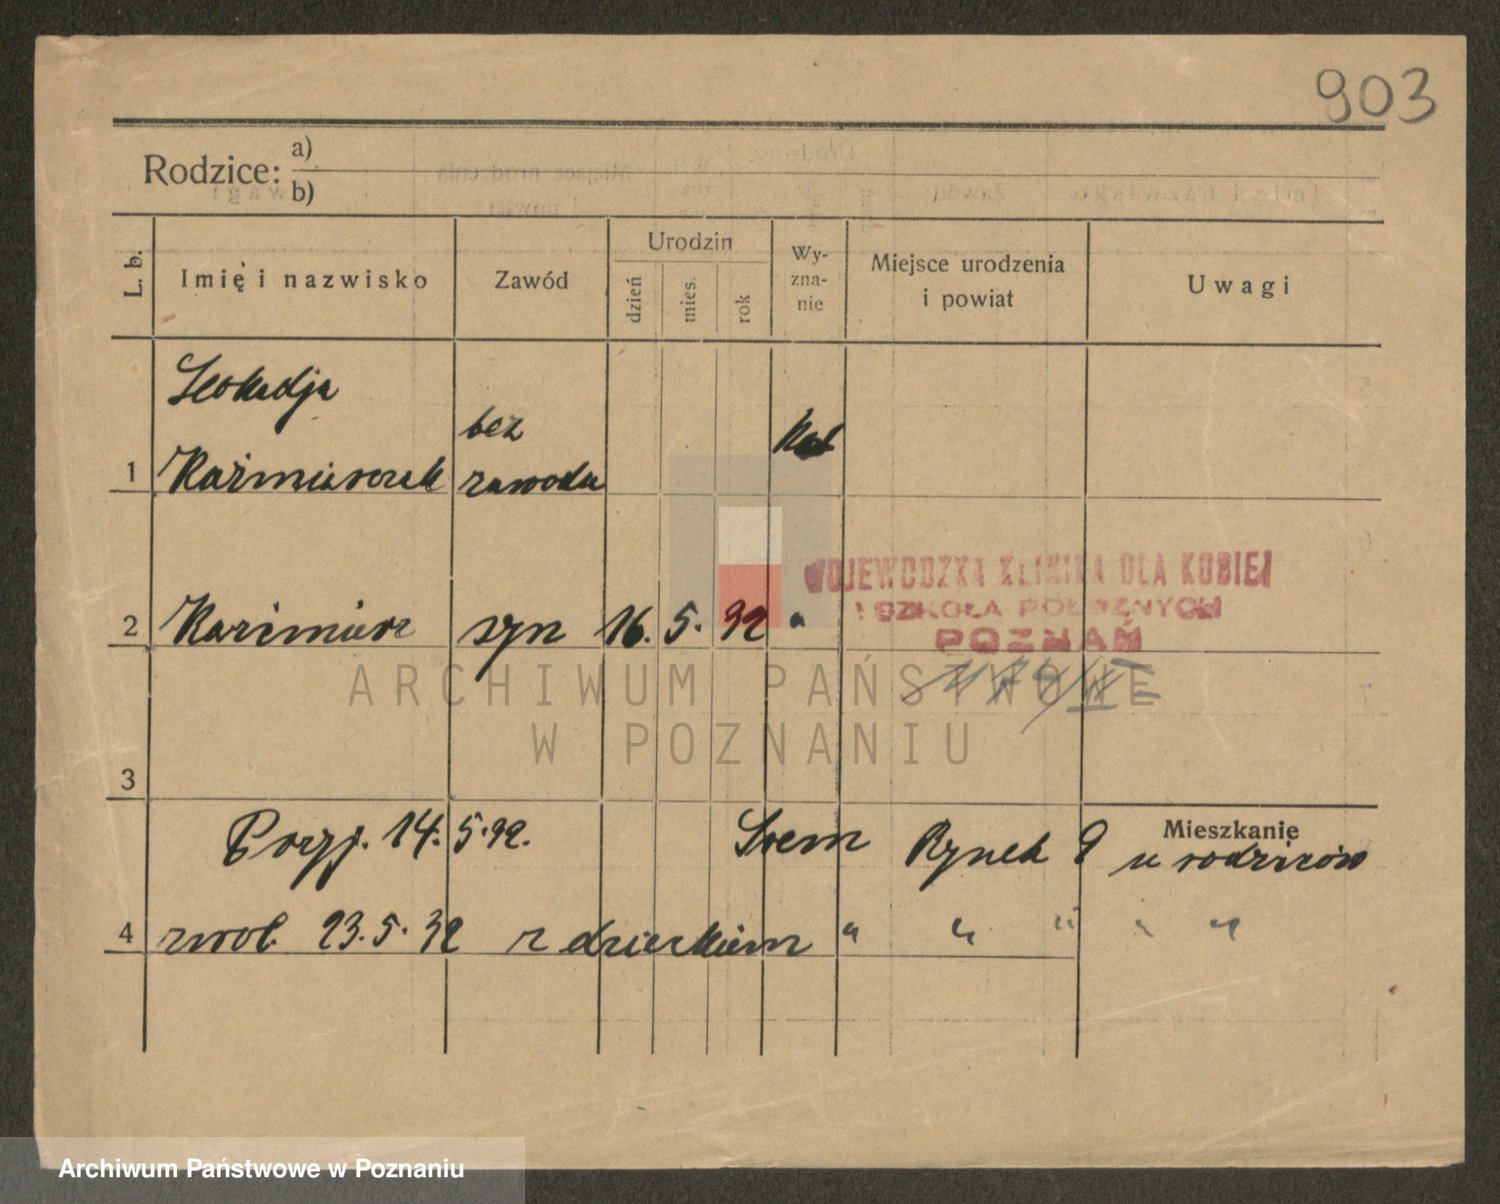 903
Rodzice: a)
b)
L. b. Imię i nazwisko Zawód Urodzin dzień mies. rok Wy-zna-nie Miejsce urodzenia i powiat Uwagi
Leokadja bez
1 Kaźmierczak zawodu Kat
WOJEWODZKA KLINIKA DLA KOBIET
I SZKOŁA POŁOŻNYCH
POZNAŃ
2 Kazimierz syn 16. 5. 32 "
ARCHIWUM PAŃSTWOWE
W POZNANIU
3
Przyj. 14. 5. 32. Śrem Rynek 9 Mieszkanie u rodziców
4 zwol. 23. 5. 32 z dzieckiem " " " " "
Archiwum Państwowe w Poznaniu